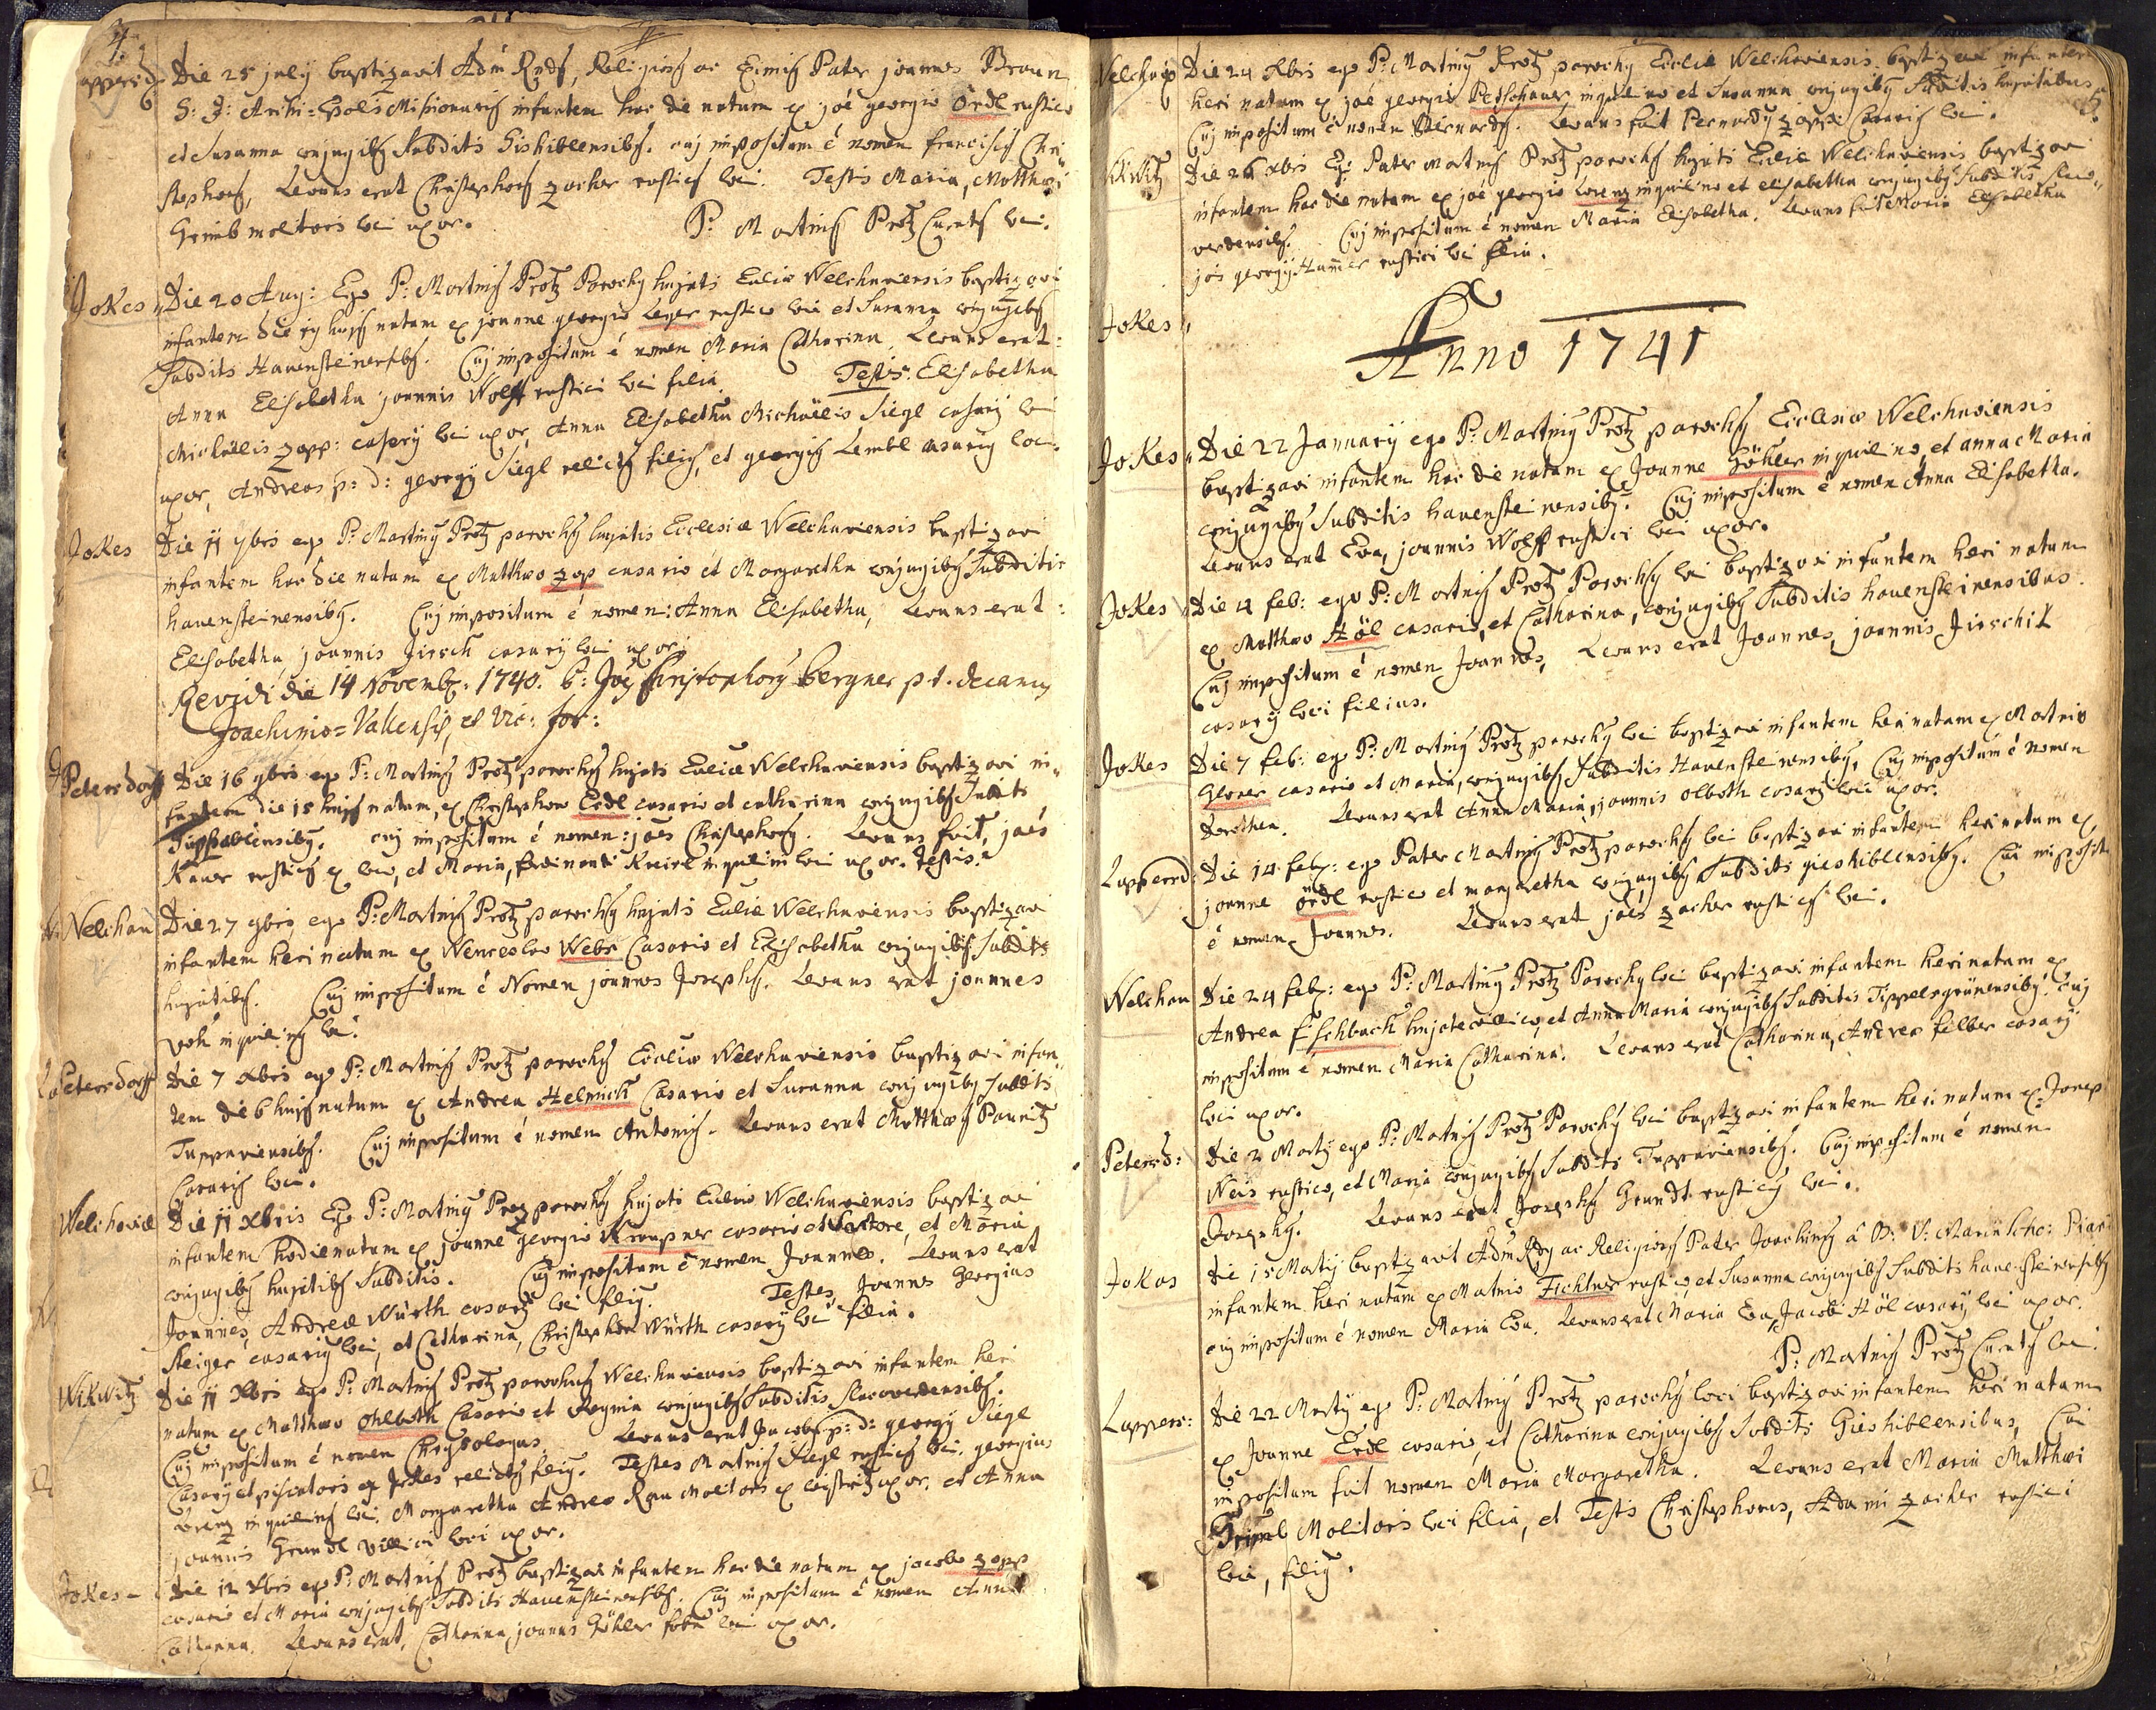 4.
Lapperd: Die 25 july baptizavit Adm Rnds, Religioss ac Eximis Pater joannes Braun
S: J: Archi=Epäls Missionaris infantem hac die natum ex joe georgio Ördl rustico
et Susanna conjugibs Subditis Gishiblensibs. cuj impositum é nomen franciscs Chri„
stophors, Levans erat Christophors zacher rustics loci. Testis Maria, Matthaei
Grimb molitoris loci uxor. P: Martins Protz Curats loci.
Jokes Die 20 Aug: Ego P: Martins Protz Parochs hujatis Eccliae Welchaviensis baptizavi
infantem die 19 hujs natam ex joanne georgio Leyer rustico loci et Susanna conjugibs
Subditis Hauensteinensibs. Cuj impositum é nomen Maria Catharina. Levans erat:
Anna Elisabetha joannis Wolff rustici loci filia. Testis: Elisabetha
Michaëlis zapp: casarÿ loci uxor, Anna Elisabetha Michaëlis Siegl casarÿ loci
uxor, Andreas p: d: georgÿ Siegl relicts filis, et georgis Lembl casaris loci.
Jokes Die 11 9bris ego P: Martins Protz parochs hujatis Ecclesiae Welchaviensis baptizavi
infantem hac die natam ex Matthaeo zap casario et Margaretha conjugibs Subditis
hauensteinensibs. Cuj impositum é nomen: Anna Elisabetha, Levans erat:
Elisabetha joannis Jirsch casarÿ loci uxor.
Revidi die 14 Novemb: 1740. b: Joes Christophors Bergner p.t. decanus
Joachimio=Vallensis, et Vic: for:
Petersdorff Die 16 9bris ego P: Martins Protz parochs hujatis Eccliae Welchaviensis baptizavi in„
fantem die 15 hujs natum, ex Christophoro Erdl casario et catharina conjugibs Subdits
Tuppablensibs. cuj impositum é nomen: joaes Christophors. Levans fuit, joaés
rustics ex loco, et Maria, ferdinandi inquilini loci uxor. Testis.
Welchau Die 27 9bris ego P: Martins Protz parochs hujatis Eccliae Welchaviensis baptizavi
infantem heri natum ex Wenceslao Webr Casario et Elisabetha conjugibs Subdits
hujatibs. Cuj impositum é Nomen joannes Josephs. Levans erat joannes
inquilins loci.
Petersdorff Die 7 Xbris ego P: Martins Protz parochs Eccliae Welchaviensis baptizavi infan
tem die 6 hujs natum ex Andrea Helmich Casario et Susanna conjugibs Subdits
Tuppaviensibs. Cuj impositum é nomen Antonis. Levans erat Matthaeus Paunitz
Casaris loci.
Welchaviae Die 11 Xbris Ego P: Martins Protz parochs hujatis Eccliae Welchaviensis baptizavi
infantem hodie natum ex joanne georgio Kraupner casario et Sartore, et Maria
conjugibs hujatibs Subditis. Cuj impositum é nomen Joannes. Levans erat
Joannes, Andreae Würth casarÿ loci filis. Testes, Joannes Georgius
Steiger casaris loci, et Catharina, Christophori Würth casarÿ loci filia.
Wikwitz Die 11 Xbris ego P: Martins Protz parochus Welchaviensis baptizavi infantem heri
natum ex Matthaeo Ohlboth Casario et Regina conjugibs Subditis Slacoverdensibs.
Cuj impositum é nomen Chrysologus. Levans erat Jacobs p: d: georgÿ Siegl
Casarÿ et piscatoris ex Jokes relicts filis. Testes Martins Siegl rustics loci. georgius
Lorenz inquilins loci. Margaretha Andreae Rau Molitoris ex uxor, et Anna
joannis Grundl villici loci uxor.
Jokes - Die 12 Xbris ego P: Martins Protz baptizavi infantem hac die natam ex jacobo zapp
casario et Maria conjugibs Subdits Hauensteinensibs. Cuj impositum é nomen Anna
Catharina. Levans erat, Catharina joannis Göhler fabri loci uxor.
Welchau Die 24 Xbris ego P: Martins Protz parochs Eccliae Welchaviensis baptizavi infantem
heri natum ex joae georgio Petschauer inquilino et Susanna conjugibs Subditis hujatibus
Cuj impositum é nomen Bernards. Levans fuit Bernardus zapp Casaris loci. 5.
Wikwitz Die 26 Xbris Ego Pater Martins Protz parochs hujatis Eccliae Welchaviensis baptizavi
infantem hac die natam ex joaé georgio Lorenz inquilino et elisabetha conjugibs Subditis Slaco„
verdensibs. Cuj impositum é nomen Maria Elisabetha. Levans fuit Maria Elisabetha
jois georgÿ Hamer rustici loci filia.
Jokes„
Anno 1741
Jokes„ Die 22 Januarÿ ego P: Martins Protz parochs Ecclesiae Welchaviensis
baptizavi infantem hac die natam ex Joanne Göhler inquilino, et anna Maria
conjugibs Subditis hauensteinensibs. Cuj impositum é nomen Anna Elisabetha.
Levans erat Eva, joannis Wolff rustici loci uxor.
Jokes Die 4 feb: ego P: Martins Protz Parochs loci baptizavi infantem heri natum
ex Matthaeo Höl casario, et Catharina, conjugibs Subditis hauensteinensibus.
Cuj impositum é nomen Joannes, Levans erat Joannes, joannis Jirschik
casarÿ loci filius.
Jokes Die 7 feb: ego P: Martins Protz parochs loci baptizavi infantem heri natam ex Martino
Geyer casario et Maria, conjugibs Subditis Hauensteinensibs. Cuj impositum é nomen
Dorothea. Levans erat Anna Maria, joannis olboth casarÿ loci uxor.
Lapperd: Die 14 feb: ego Pater Martins Protz parochs loci baptizavi infantem heri natum ex
joanne ördl rustico et margaretha conjugibs Subdits gieshiblensibs. Cui imposit
é nomen Joannes. Levans erat joaés zacher rustics loci.
Welchau Die 24 feb: ego P: Martins Protz Parochs loci baptizavi infantem heri natam ex
Andrea fischbach hujate villico, et Anna Maria conjugibs Subditis Tippelsgrünensibs. cuj
impositum é nomen Maria Catharina. Levans erat Catharina, Andreae felber casarÿ
loci uxor.
Petersd: Die 2 Martÿ ego P: Martins Protz Parochs loci baptizavi infantem heri natum ex Josep
Weis rustico, et Maria conjugibs Subdits Tuppaviensibs. Cuj impositum é nomen
Josephs. Levans erat Josephs Grundt rustics loci.
Jokes Die 15 Martÿ baptizavit Adm Rds ac Religioss Pater Joachims á B: V: Maria Scho: Piar
infantem heri natam ex Martino Fichtner rustico, et Susanna conjugibs Subdits hauensteinensibs
cuj impositum é nomen Maria Eva. Levans erat Maria Eva, Jacobi Höl casarÿ loci uxor.
P: Martins Protz Curats loci.
Lappers: Die 22 Martÿ ego P: Martins Protz parochs loci baptizavi infantem heri natam
ex Joanne Erdl casario, et Catharina conjugibs Subdits Gieshiblensibus, Cui
impositum fuit nomen Maria Margaretha. Levans erat Maria Matthaei
Grimb Molitoris loci filia, et Testis Christophorus, Adami zacher rustici
loci, filis.